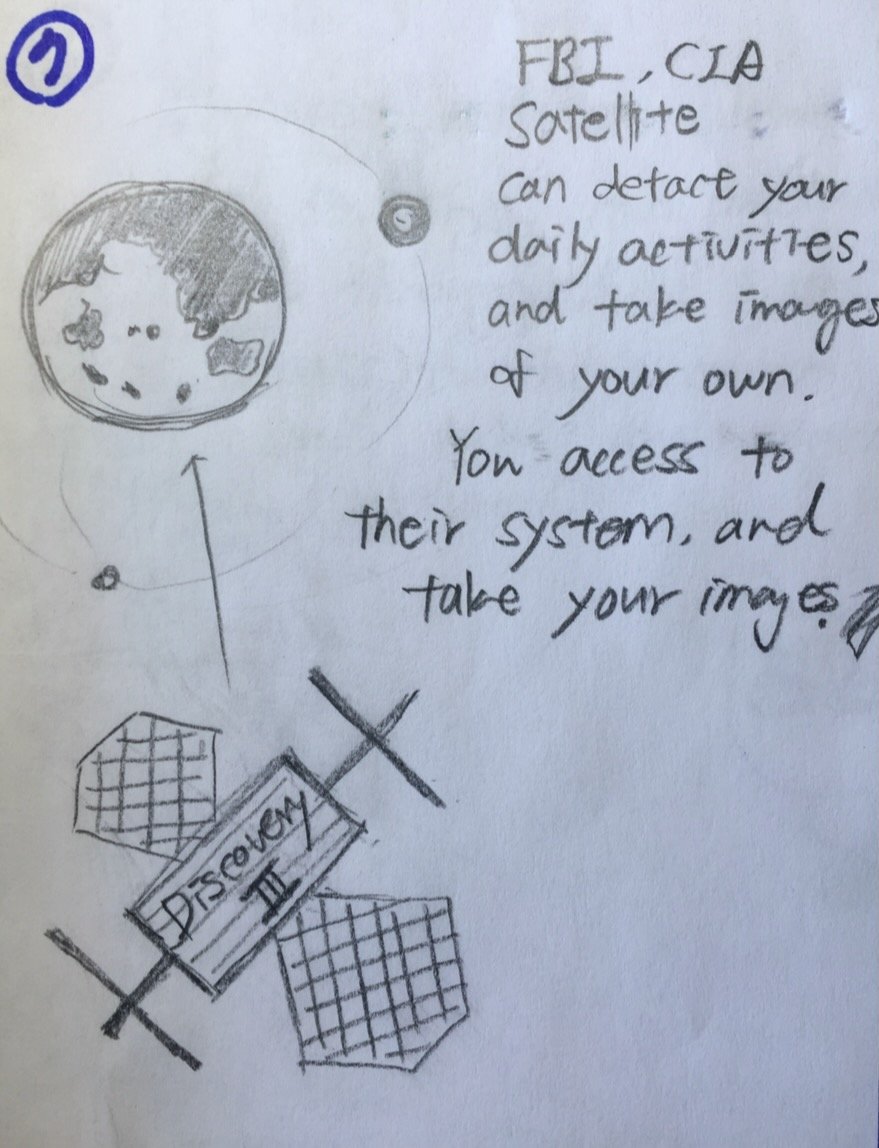 7
FBI, CIA
Satellite
can detact your
daily activities,
and take images
of your own.
You access to
their system, and
take your images.
Discovery
III